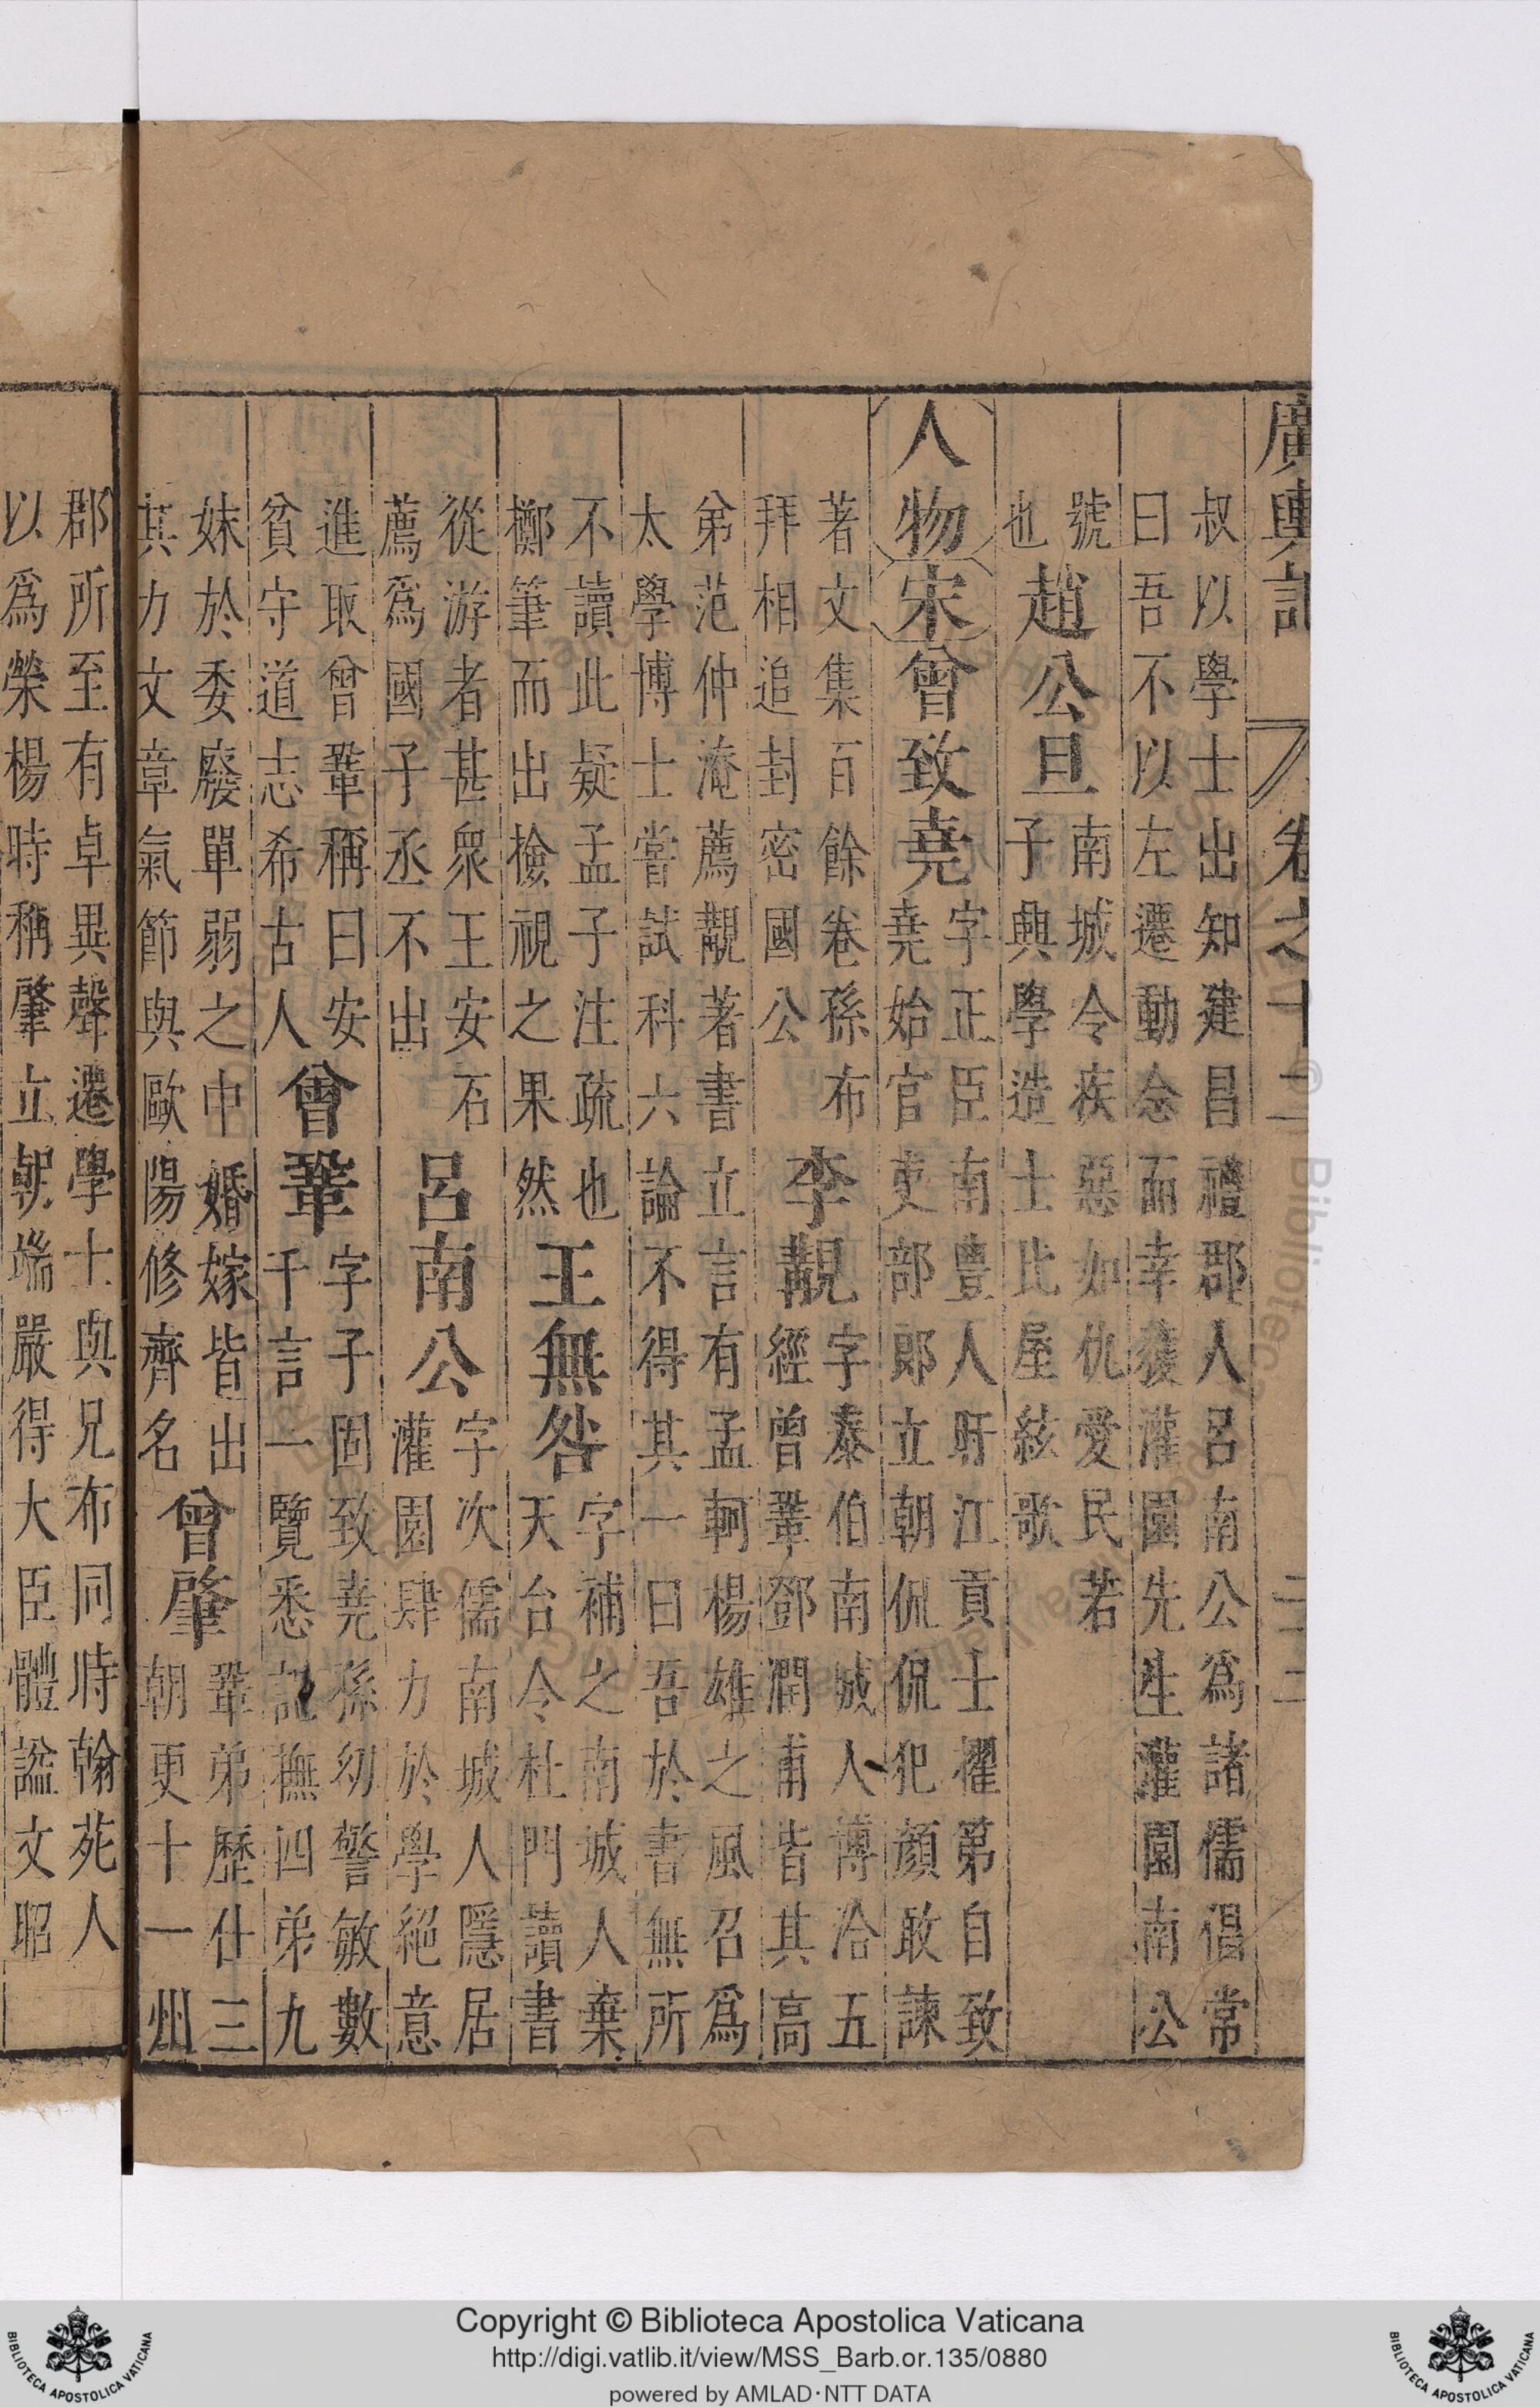 廣輿記 卷之十二 二十二
叔以學士出知建昌禮郡人呂南公爲諸儒倡常
曰吾不以左遷動念而幸獲灌園先生灌園南公
號
也
趙公旦
南城令疾惡如仇愛民若
子興學造士比屋絃歌
人物
宋
曾致堯
字正臣南豊人盱江貢士擢第自致
堯始官吏部郎立朝侃侃犯顔敢諫
著文集百餘卷孫布
拜相追封密國公
李覯
字泰伯南城人博洽五
經曾鞏鄧潤甫皆其高
弟范仲淹薦覯著書立言有孟軻楊雄之風召爲
太學博士嘗試科六論不得其一曰吾於書無所
不讀此疑孟子注疏也
擲筆而出檢視之果然
王無咎
字補之南城人棄
天台令杜門讀書
從游者甚衆王安石
薦爲國子丞不出
呂南公
字次儒南城人隱居
灌園肆力於學絕意
進取曾鞏稱曰安
貧守道志希古人
曾鞏
字子固致堯孫幼警敏數
千言一覽悉記撫四弟九
妹於委廢單弱之中婚嫁皆出
其力文章氣節與歐陽修齊名
曾肇
鞏弟歷仕三
朝更十一州
郡所至有卓異聲遷學士與兄布同時翰苑人
以爲榮楊時稱肇立朝端嚴得大臣體謚文昭
Copyright © Biblioteca Apostolica Vaticana
http://digi.vatlib.it/view/MSS_Barb.or.135/0880
powered by AMLAD·NTT DATA
BIBLIOTECA APOSTOLICA VATICANA
BIBLIOTECA APOSTOLICA VATICANA